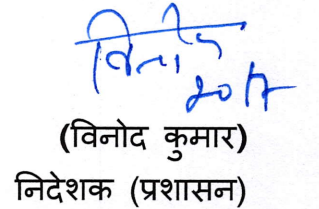 विनोद
(विनोद कुमार)
निदेशक (प्रशासन)